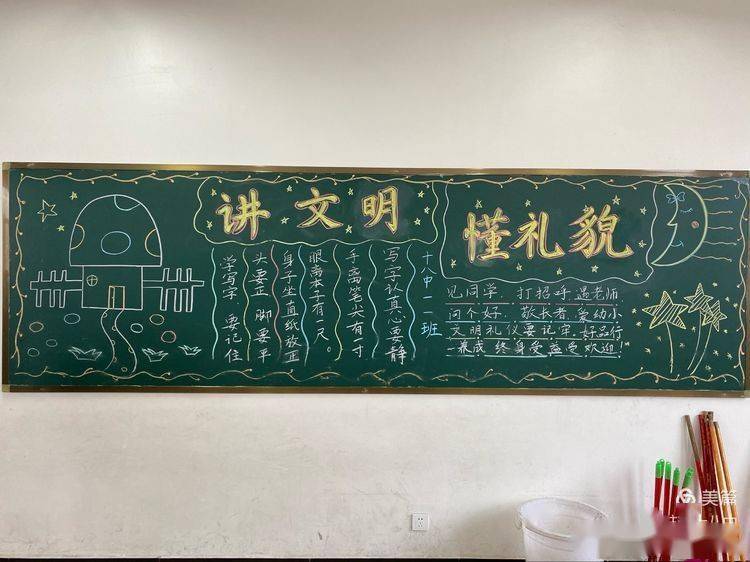 讲文明
懂礼貌
学写字 要记住
头要正 脚要平
身子坐直纸放正
眼离本子有一尺。
手离笔尖有一寸
写字认真心要静
十八中一一班
见同学,打招呼,遇老师
问个好,敬长者,爱幼小
文明礼仪要记牢,好品行
养成终身受益受欢迎!
美篇